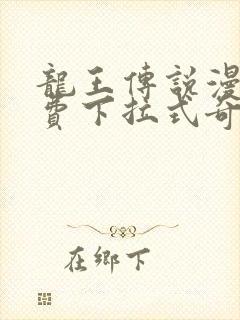 龍王傳說漫
費下拉式奇
在鄉下